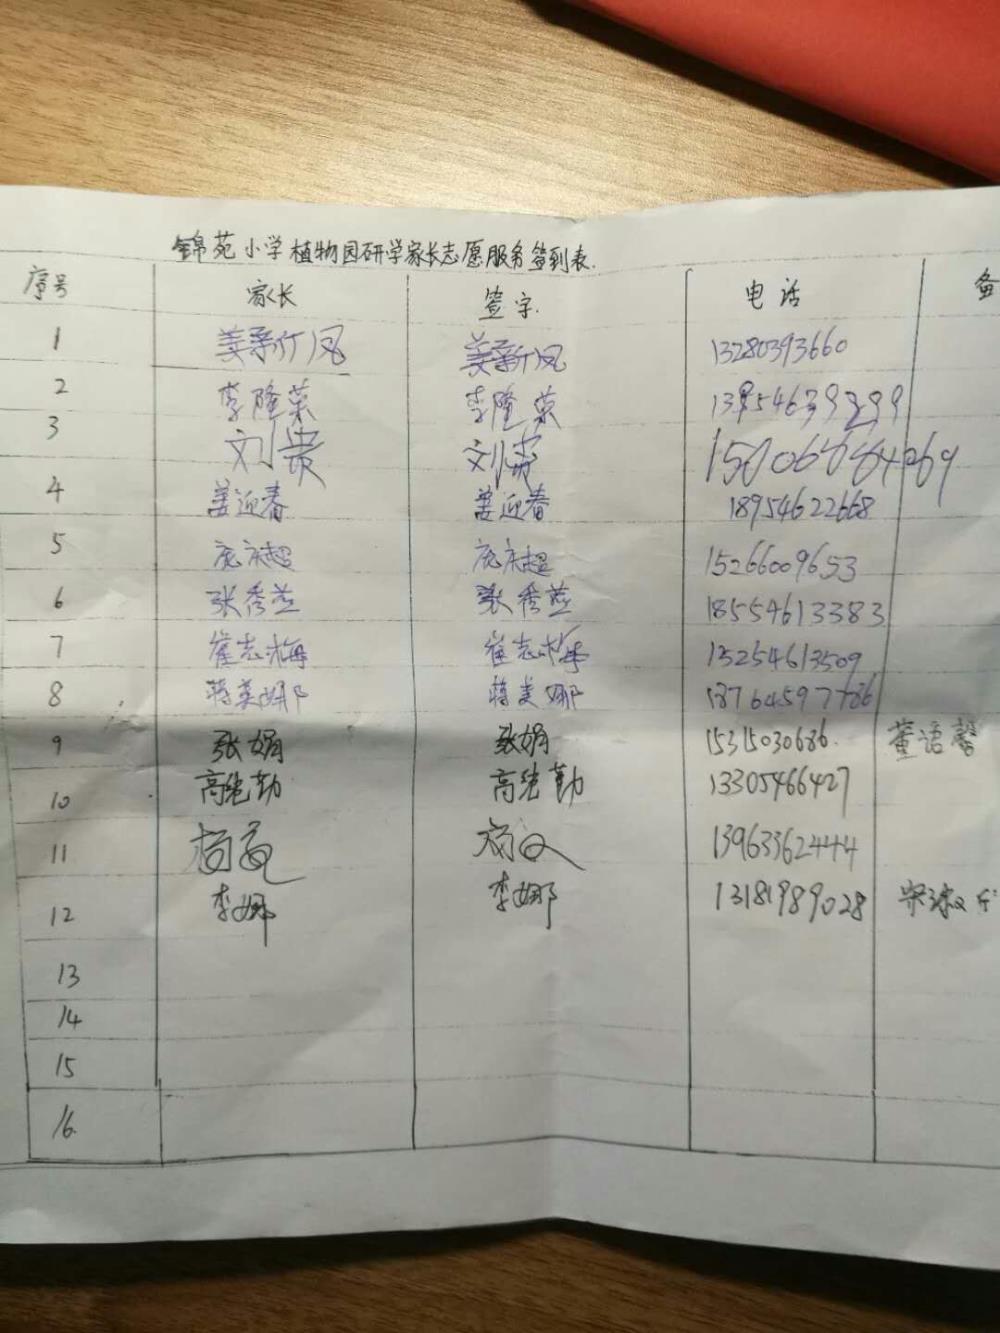 锦苑小学植物园研学家长志愿服务签到表.
序号 家长 签字. 电话 备
1 姜新凤 姜新凤 13280393660
2 李隆荣 李隆荣 13954639299
3 刘 刘 15006884269
4 姜迎春 姜迎春 18954622668
5 庞庆超 庞庆超 15266009653
6 张秀燕 张秀燕 18554613383
7 崔志梅 崔志梅 15254613509
8 蒋美娜 蒋美娜 18764597786
9 张娟 张娟 15315030686. 董语馨
10 高绝勤 高绝勤 13305466427
11 杨 13963362444
12 李娜 李娜 13181989028 宋
13
14
15
16.